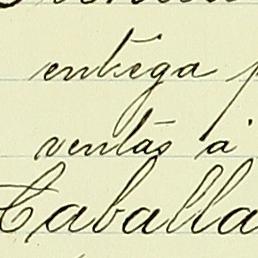 entrega
ventas á
Caballa